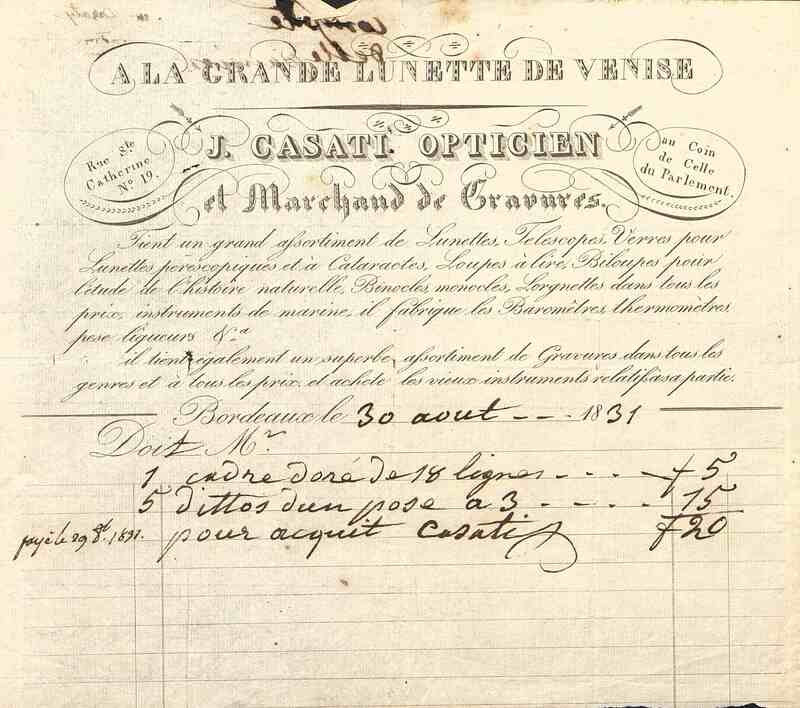 A LA GRANDE LUNETTE DE VENISE
J. CASATI. OPTICIEN
Rue Ste
Catherine
No. 19.
au Coin
de Celle
du Parlement.
et Marchand de Gravures.
Tient un grand assortiment de Lunettes, Telescopes, Verres pour
Lunettes péréscopiques et à Cataractes, Loupes à lire, Biloupes pour
l'étude de l'histoire naturelle, Binocles, monocles, Lorgnettes dans tous les
prix, instruments de marine, il fabrique les Baromètres, thermomètres
pese liqueurs &a
il tient également un superbe assortiment de Gravures dans tous les
genres et à tous les prix, et achète les vieux instruments relatifs a sa partie.
Bordeaux le 30 aout 1831
Doit Mr
1 cadre doré de 18 lignes - - - - f 5
5 dittos d'un pose a 3 - - - - - 15
payé le 29 8bre 1831. pour acquit Casati f 20